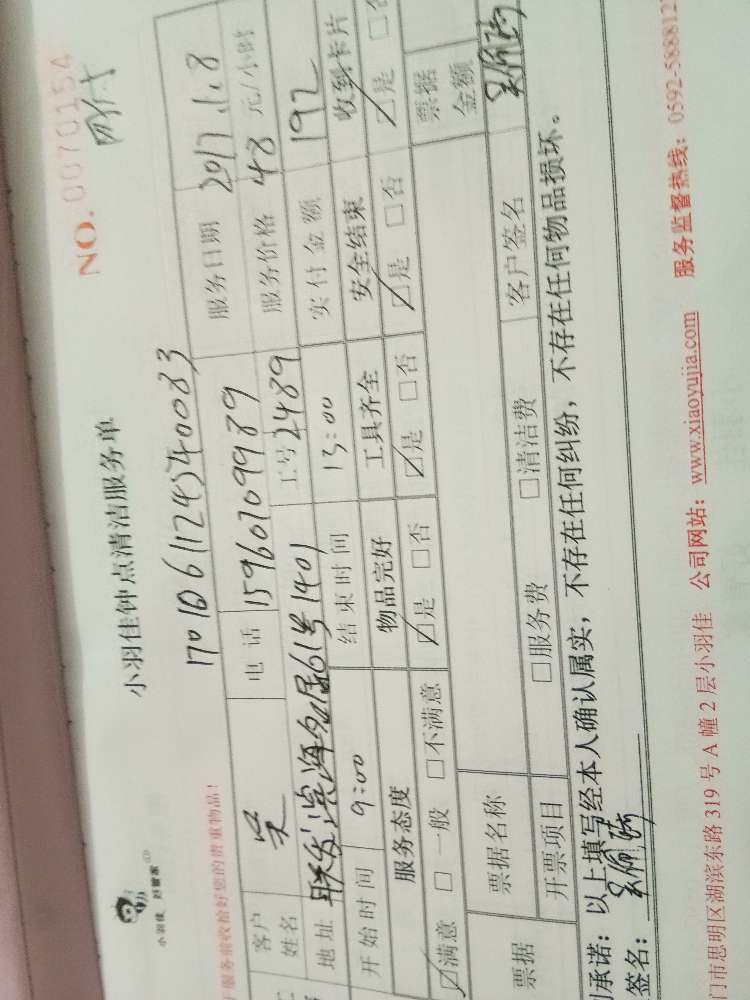 小羽佳 好管家
小羽佳钟点清洁服务单
NO.0070154
服务前收拾好您的贵重物品!
客户姓名 吴 电话 15960709989 服务日期 2017.1.8
地址 联发滨海名居61号1401 工号 2489 服务价格 48 元/小时
开始时间 9:00 结束时间 13:00 实付金额 192
服务态度 物品完好 工具齐全 安全结束 收到卡片
☑满意 □一般 □不满意 ☑是 □否 ☑是 □否 ☑是 □否 ☑是
票据 票据名称 票据金额
开票项目 □服务费 □清洁费 客户签名
承诺:以上填写经本人确认属实,不存在任何纠纷,不存在任何物品损坏。
签名:
门市思明区湖滨东路 319 号 A 幢 2 层小羽佳 公司网站:www.xiaoyujia.com 服务监督热线:0592-588812